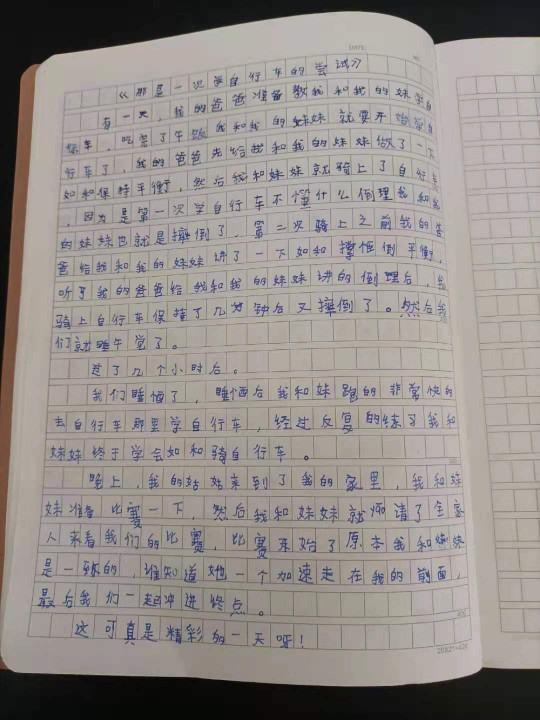 《那是一次学自行车的尝试》
有一天，我的爸爸准备教我和我的妹学自
行车，吃完了午饭我和我的妹妹就要开始学自
行车了，我的爸爸先给我和我的妹妹做了一下
如和保持平衡，然后我和妹妹就骑上了自行车
，因为是第一次学自行车不懂什么倒理我和我
的妹妹也就是摔倒了，第二次骑上之前我的爸
爸给我和我的妹妹讲了一下如和平衡，
听了我的爸爸给我和我的妹妹讲的倒理后，我
骑上自行车保持了几分钟后又摔倒了。然后我
们就睡午觉了。
过了几个小时后。
我们睡洒了，睡洒后我和妹跑的非常快的
去自行车那里学自行车，经过反复的练习我和
妹妹终于学会如和骑自行车。
晚上，我的姑姑来到了我的家里，我和妹
妹准备比赛一下，然后我和妹妹就请了全家
人来看我们的比赛，比赛开始了原本我和妹妹
是一样的，谁知道她一个加速走在我的前面，
最后我们一起冲进终点。
这可真是精彩的一天呀！